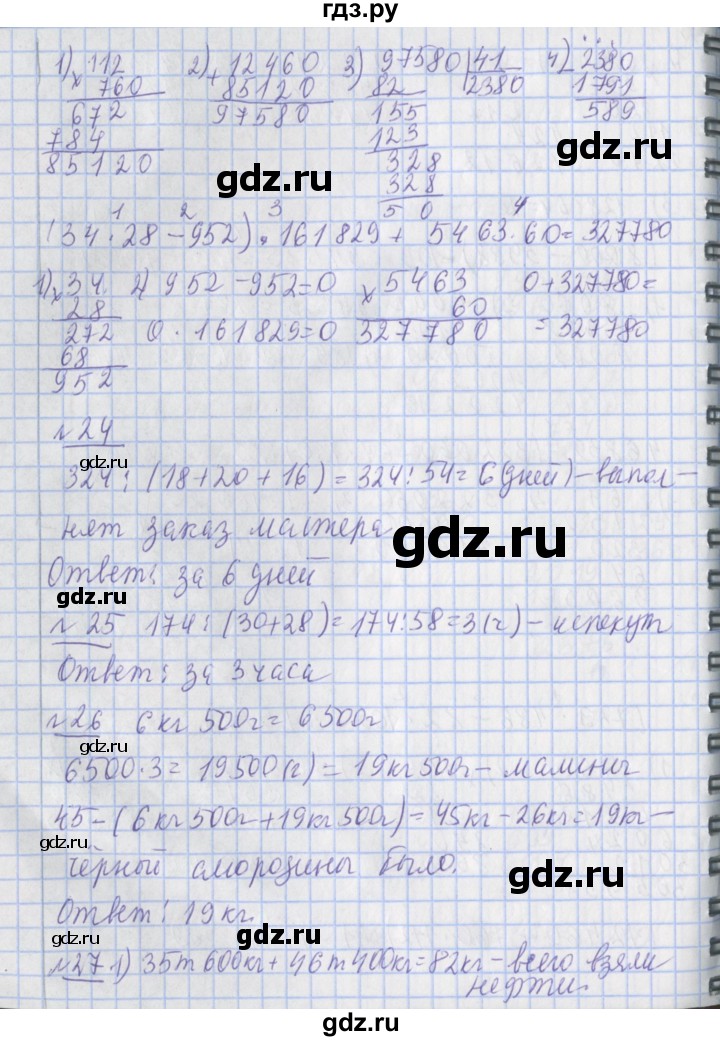 гдз.ру
1) 112 2) 12460 3) 97580 | 41 4) 2380
× 760 + 85120 82 2380 1791
672 97580 155 589
784 123
85120 328
gdz.ru
328
gdz.ru
5 0
1 2 3 4
(34·28-952)·161829+ 5463·60=327780
1) ×34 2) 952-952=0 ×5463 0+327780=
28 60
272 0·161829=0 327780 =327780
68
952
№24
gdz.ru
324:(18+20+16)=324:54=6(дней)-выпол-
нят заказ мастера
gdz.ru
Ответ: за 6 дней
gdz.ru
№25 174:(30+28)=174:58=3(ч)-испекут
Ответ: за 3 часа
№26 6кг 500г=6500г
gdz.ru
6500·3=19500(г)=19кг500г-малины
45-(6кг500г+19кг500г)=45кг-26кг=19кг-
gdz.ru
чёрной смородины было.
gdz.ru
Ответ: 19кг.
gdz.ru
gdz.ru
№27 1) 35т600кг+46т400кг=82кг-всего взяли
нефти.
gdz.ru
gdz.ru